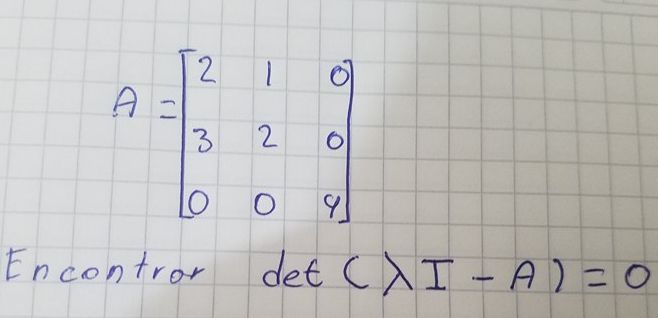 2 1 0
A = 3 2 0
0 0 4
Encontrar det (λI - A) = 0